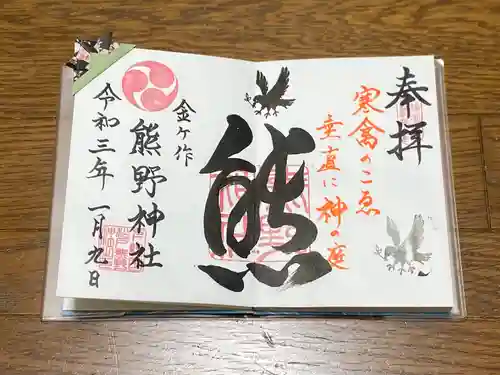 奉拝
寒禽のこゑ
垂直に神の庭
熊
金ケ作
熊野神社
令和三年一月九日